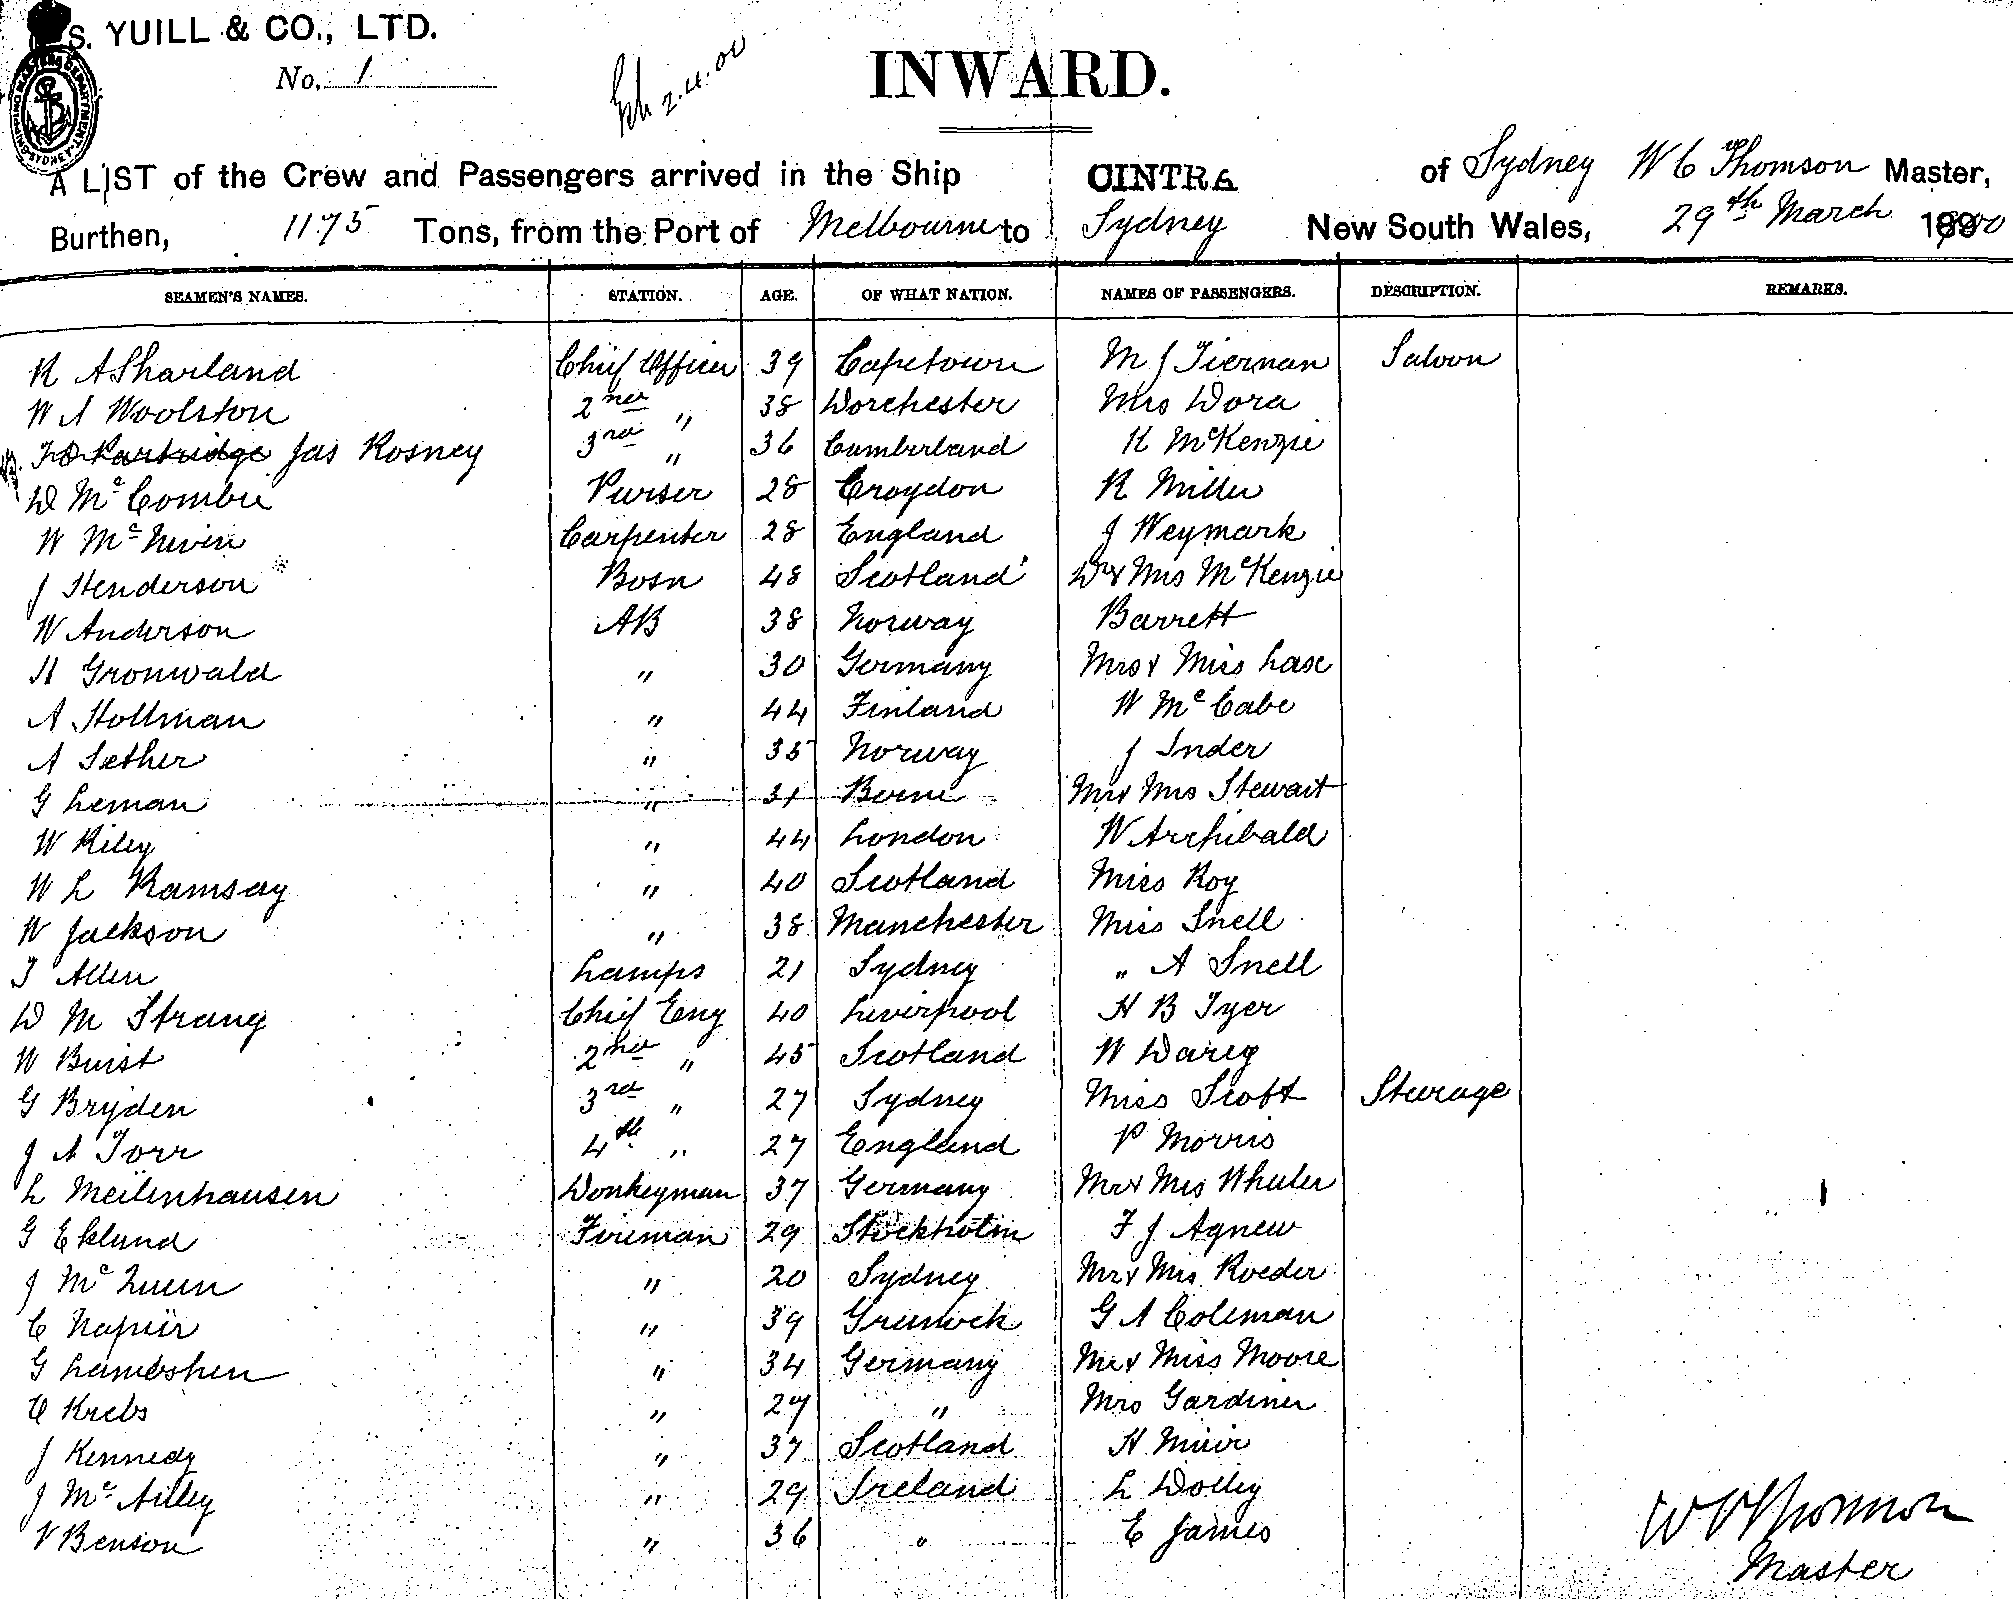 S. YUILL & CO., LTD.
No. 1
2.4.00
INWARD.
A LIST of the Crew and Passengers arrived in the Ship CINTRA of Sydney W C Thomson Master,
Burthen, 1175 Tons, from the Port of Melbourne to Sydney New South Wales, 29th March 1900
SEAMEN'S NAMES. STATION. AGE. OF WHAT NATION. NAMES OF PASSENGERS. DESCRIPTION. REMARKS.
R A Sharland Chief Officer 39 Capetown M J Tiernan Saloon
W A Woolston 2nd " 38 Dorchester Mrs Dora
F D Partridge Jas Rosney 3rd " 36 Cumberland K McKenzie
D McCombie Purser 28 Croydon R Miller
W McNiven Carpenter 28 England J Weymark
J Henderson Bosn 48 Scotland Dr & Mrs McKenzie
W Anderson AB 38 Norway Barrett
H Gronwald " 30 Germany Mrs & Miss Case
A Hollman " 44 Finland W McCabe
A Sether " 35 Norway J Inder
G Leman " 31 Berne Mr & Mrs Stewart
W Riley " 44 London W Archibald
W L Ramsay " 40 Scotland Miss Roy
W Jackson " 38 Manchester Miss Snell
T Allen Lamps 21 Sydney " A Snell
D M Strang Chief Eng 40 Liverpool H B Tyer
W Buist 2nd " 45 Scotland W Darey
G Bryden 3rd " 27 Sydney Miss Scott Steerage
J A Torr 4th " 27 England P Morris
L Meilenhausen Donkeyman 37 Germany Mr & Mrs Wheeler
G Eklund Fireman 29 Stockholm F J Agnew
J McQueen " 20 Sydney Mr & Mrs Roeder
C Napier " 39 Greenock G A Coleman
G Lambshen " 34 Germany Mr & Miss Moore
C Krebs " 27 " Mrs Gardiner
J Kennedy " 37 Scotland H Muir
J McAilley " 29 Ireland L Dolley
V Benson " 36 " E James
W C Thomson
Master